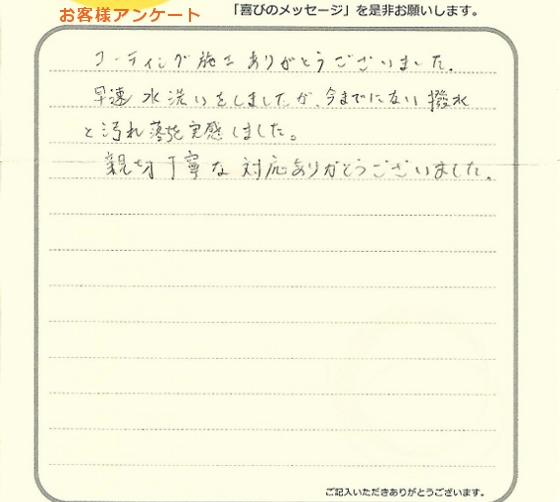 お客様アンケート 「喜びのメッセージ」を是非お願いします。
コーティング施工ありがとうございました。
早速水洗いをしましたが、今までにない撥水
と汚れ落ちを実感しました。
親切丁寧な対応ありがとうございました。
ご記入いただきありがとうございます。